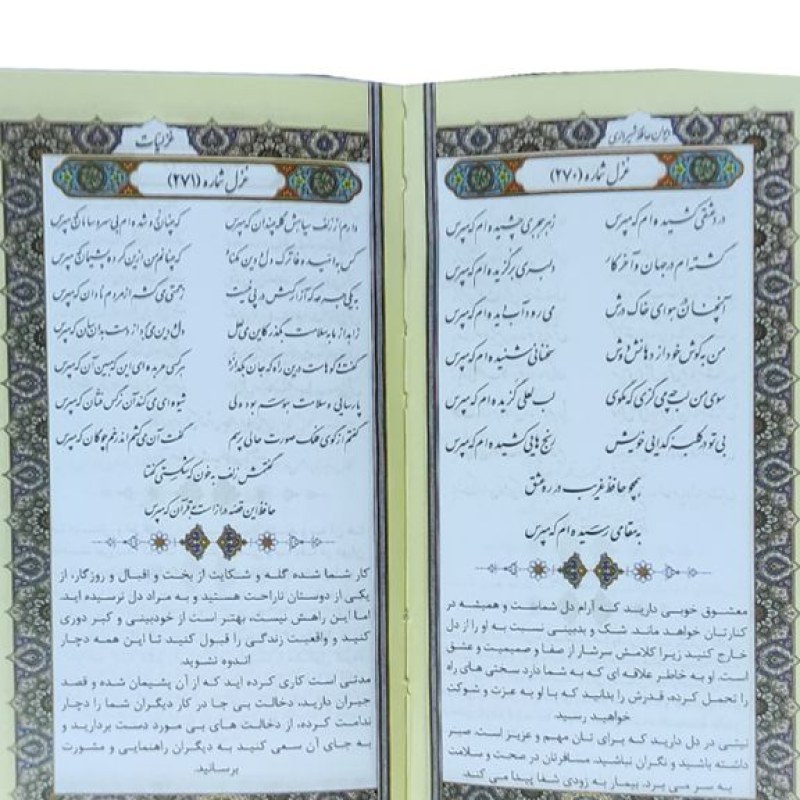 دیوان حافظ شیرازی
غزل شماره (۲۷۰)
درد عشقی کشیده ام که مپرس
زهر هجری چشیده ام که مپرس
گشته ام در جهان و آخر کار
دلبری برگزیده ام که مپرس
آنچنان در هوای خاک درش
می رود آب دیده ام که مپرس
من به گوش خود از دهانش دوش
سخنانی شنیده ام که مپرس
سوی من لب چه می گزی که مگوی
لب لعلی گزیده ام که مپرس
بی تو در کلبه گدایی خویش
رنج هایی کشیده ام که مپرس
همچو حافظ غریب در ره عشق
به مقامی رسیده ام که مپرس
معشوق خوبی دارید که آرام دل شماست و همیشه در
کنارتان خواهد ماند. شک و بدبینی نسبت به او را از دل
خارج کنید زیرا کلامش سرشار از صفا و صمیمیت و عشق
است. او به خاطر علاقه ای که به شما دارد سختی های راه
را تحمل کرده، قدرش را بدانید که با او به عزت و شوکت
خواهید رسید.
نیتی در دل دارید که برای تان مهم و عزیز است. صبر
داشته باشید و نگران نباشید. مسافرتان در صحت و سلامت
به سر می برد. بیمار به زودی شفا پیدا می کند.
غزلیات
غزل شماره (۲۷۱)
دارم از زلف سیاهش گله چندان که مپرس
که چنان زو شده ام بی سر و سامان که مپرس
کس به امید وفا ترک دل و دین مکناد
که چنانم من از این کرده پشیمان که مپرس
به یکی جرعه که آزار کسش در پی نیست
زحمتی می کشم از مردم نادان که مپرس
زاهد از ما به سلامت بگذر کاین می لعل
دل و دین می برد از دست بدانسان که مپرس
گفت و گوهاست در این راه که جان بگدازد
هر کسی عربده ای این که مبین آن که مپرس
پارسایی و سلامت هوسم بود ولی
شیوه ای می کند آن نرگس فتان که مپرس
گفتم از گوی فلک صورت حالی پرسم
گفت آن می کشم اندر خم چوگان که مپرس
گفتمش زلف به خون که شکستی گفتا
حافظ این قصه دراز است به قرآن که مپرس
کار شما شده گله و شکایت از بخت و اقبال و روزگار، از
یکی از دوستان ناراحت هستید و به مراد دل نرسیده اید.
اما این راهش نیست، بهتر است از خودبینی و کبر دوری
کنید و واقعیت زندگی را قبول کنید تا این همه دچار
اندوه نشوید.
مدتی است کاری کرده اید که از آن پشیمان شده و قصد
جبران دارید، دخالت بی جا در کار دیگران شما را دچار
ندامت کرده، از دخالت های بی مورد دست بردارید و
به جای آن سعی کنید به دیگران راهنمایی و مشورت
برسانید.